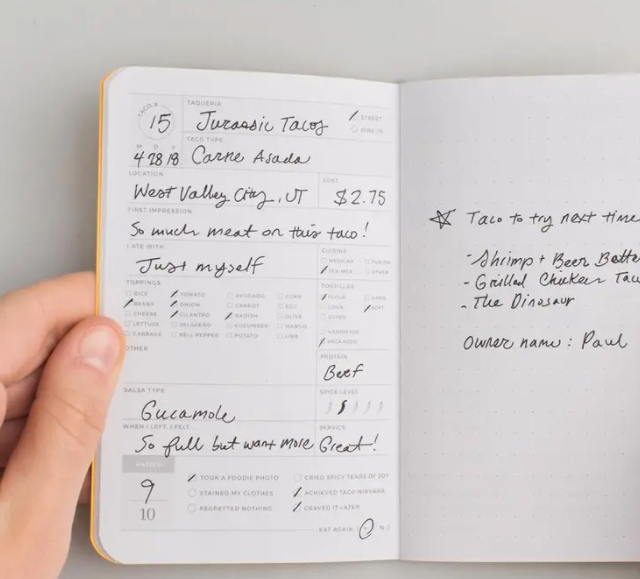 TACO #
15
TAQUERIA
Jurassic Tacos
STREET
DINE IN
M D Y
4 28 18
TACO TYPE
Carne Asada
LOCATION
West Valley City, UT
COST
$2.75
FIRST IMPRESSION
So much meat on this taco!
I ATE WITH
Just myself
CUISINE
MEXICAN
FUSION
TEX-MEX
OTHER
TOPPINGS
RICE TOMATO AVOCADO CORN
BEANS ONION CARROT EGG
CHEESE CILANTRO RADISH OLIVE
LETTUCE JALAPENO CUCUMBER MANGO
CABBAGE BELL PEPPER POTATO LIME
TORTILLAS
FLOUR HARD
CORN SOFT
HANDMADE
PACKAGED
OTHER
PROTEIN
Beef
SALSA TYPE
Gucamole
SPICE LEVEL
WHEN I LEFT, I FELT
So full but want more
SERVICE
Great!
9
10
TOOK A FOODIE PHOTO
STAINED MY CLOTHES
REGRETTED NOTHING
CRIED SPICY TEARS OF JOY
ACHIEVED TACO NIRVANA
CRAVED IT LATER
EAT AGAIN
Y N
Taco to try next time
- Shrimp + Beer Batte
- Grilled Chicken Tac
- The Dinosaur
Owner name: Paul